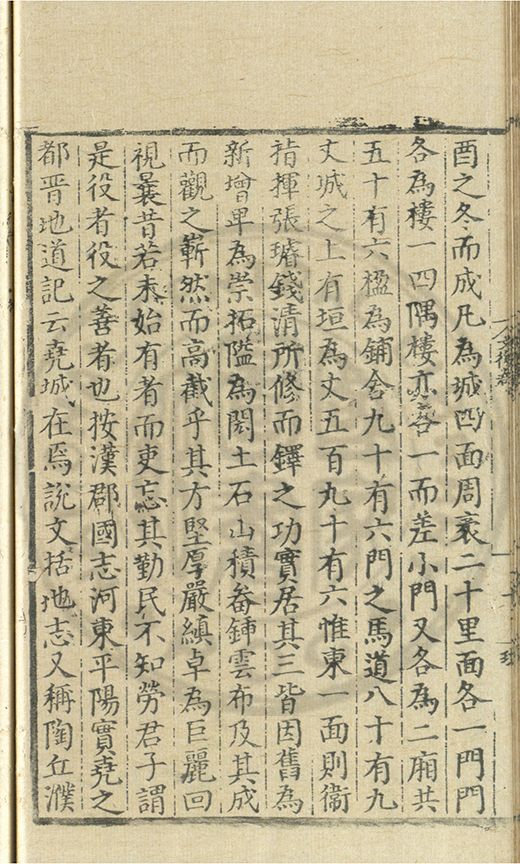 酉之冬而成凡為城四面周袤二十里面各一門門
各為樓一四隅樓亦各一而差小門又各為二廂共
五十有六楹為鋪舍九十有六門之馬道八十有九
丈城之上有垣為丈五百九十有六惟東一面則衞
指揮張璿錢清所修而鐸之功實居其三皆因舊為
新增卑為崇拓隘為闊土石山積畚鍤雲布及其成
而觀之嶄然而高截乎其方堅厚嚴縝卓為巨麗回
視曩昔若未始有者而吏忘其勤民不知勞君子謂
是役者役之善者也按漢郡國志河東平陽實堯之
都晋地道記云堯城在焉說文括地志又稱陶丘濮